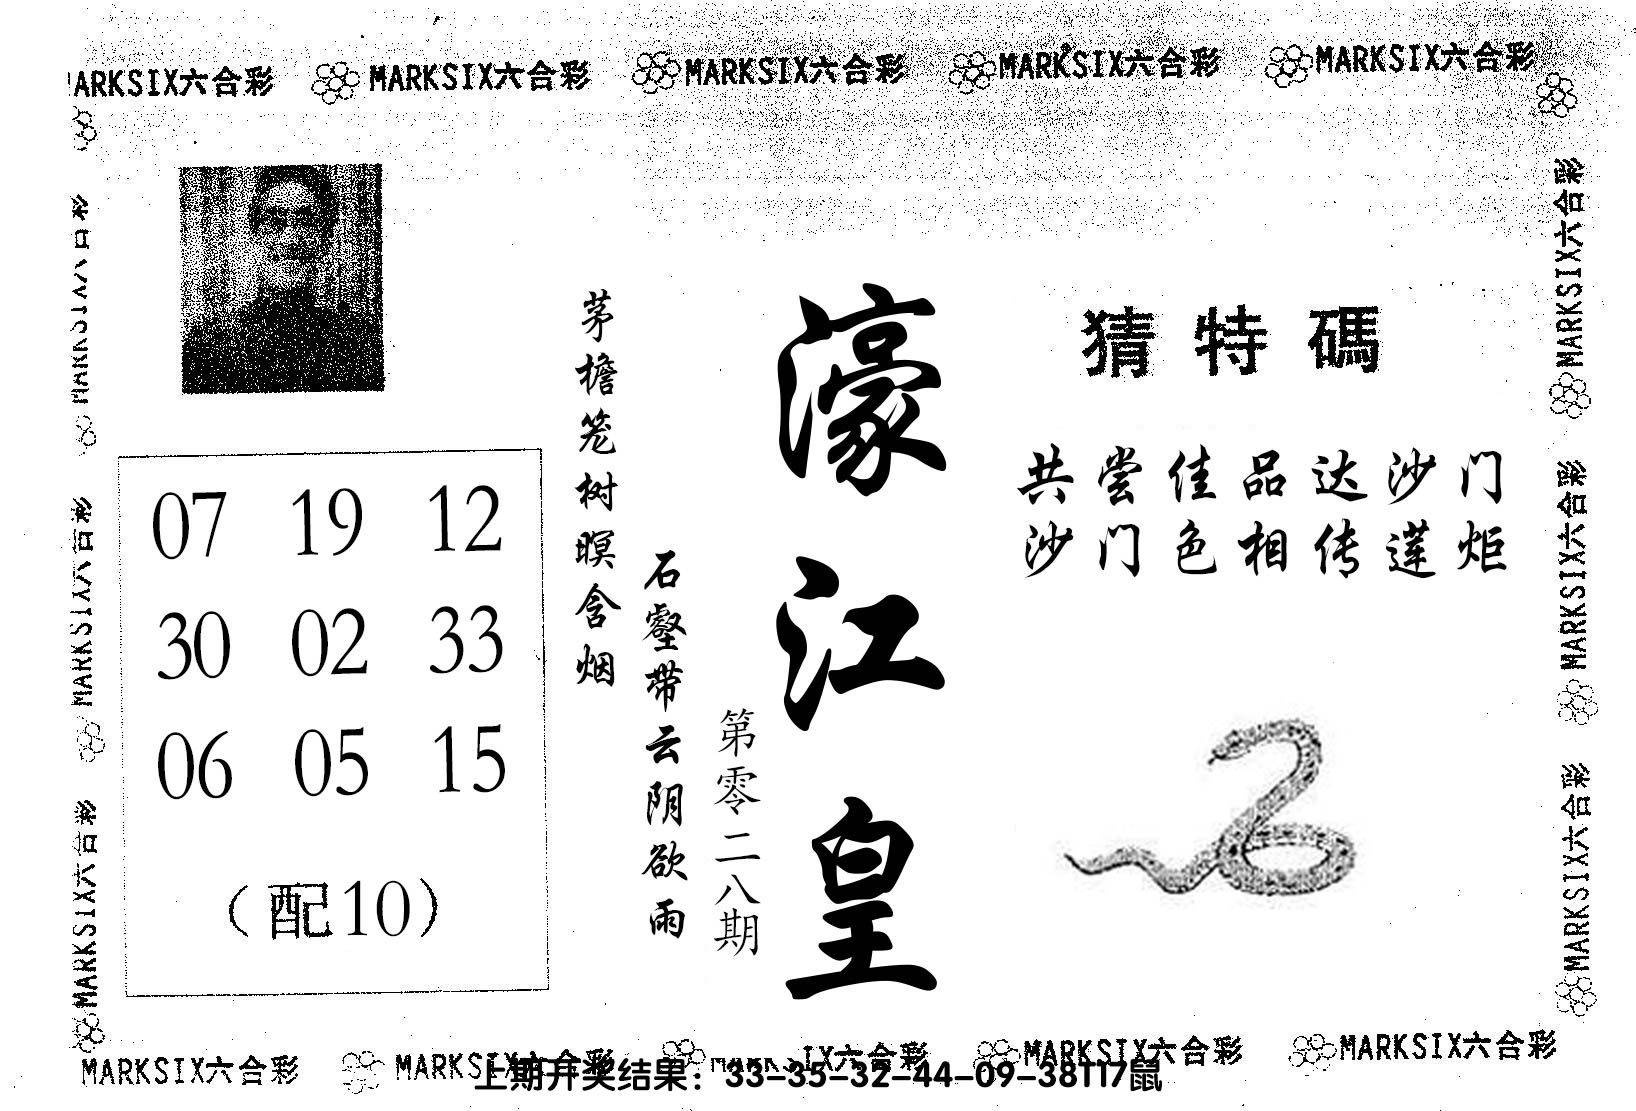 MARKSIX六合彩 MARKSIX六合彩 MARKSIX六合彩 MARKSIX六合彩 MARKSIX六合彩
猜特碼
共尝佳品达沙门
沙门色相传莲炬
濠江皇
第零二八期
石壑带云阴欲雨
茅檐笼树暝含烟
07 19 12
30 02 33
06 05 15
（配10）
MARKSIX六合彩
MARKSIX六合彩
MARKSIX六合彩
MARKSIX六合彩
MARKSIX六合彩
MARKSIX六合彩
MARKSIX六合彩 MARKSIX六合彩 MARKSIX六合彩 MARKSIX六合彩 MARKSIX六合彩
上期开奖结果：33-35-32-44-09-38T17鼠